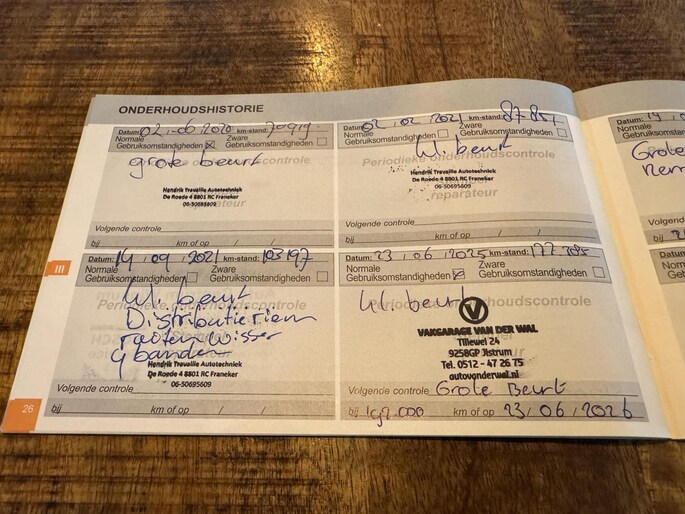 ONDERHOUDSHISTORIE
Datum: 02 , 06 , 2020 km-stand: 70919
Normale Gebruiksomstandigheden ☒ Zware Gebruiksomstandigheden ☐
grote beurt
Periodieke onderhoudscontrole
Hendrik Travaille Autotechniek
De Roede 4 8801 RC Franeker
06-50695609
reparateur
Volgende controle
bij km of op / /
Datum: 02 , 02 , 2021 km-stand: 87.851
Normale Gebruiksomstandigheden ☐ Zware Gebruiksomstandigheden ☐
kl. beurt
Periodieke onderhoudscontrole
Hendrik Travaille Autotechniek
De Roede 4 8801 RC Franeker
06-50695609
reparateur
Volgende controle
bij km of op / /
III
Datum: 14 , 09 , 2021 km-stand: 103197
Normale Gebruiksomstandigheden ☐ Zware Gebruiksomstandigheden ☐
kl. beurt
Distributieriem
ruitenwisser
4 banden
Hendrik Travaille Autotechniek
De Roede 4 8801 RC Franeker
06-50695609
Volgende controle
bij km of op / /
Datum: 23 , 06 , 2025 km-stand: 177.385
Normale Gebruiksomstandigheden ☒ Zware Gebruiksomstandigheden ☐
kl. beurt
Periodieke onderhoudscontrole
VAKGARAGE VAN DER WAL
Tillewei 24
9258GP Jistrum
Tel. 0512 - 47 26 75
autovanderwal.nl
Volgende controle Grote Beurt
bij 192.000 km of op 23 , 06 , 2026
26
Datum: 14
Normale
Gebruik
Grote
Volgend
bij
Datum:
Normale
Gebruik